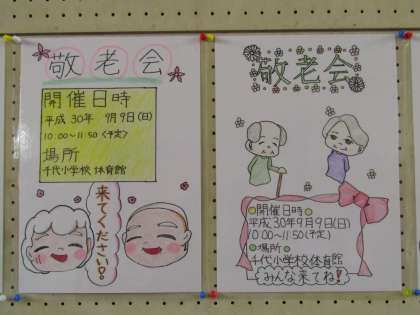 敬老会
開催日時
平成30年 9月9日(日)
10:00~11:50〈予定〉
場所
千代小学校 体育館
来てください!!
敬老会
◎開催日時◎
平成30年9月9日(日)
10:00~11:50(予定)
◎場所◎
千代小学校体育館
みんな来てね!